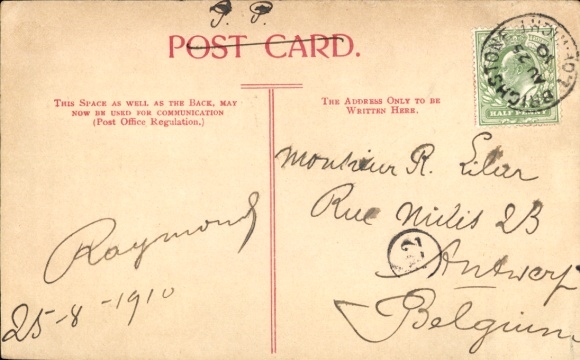 P. P.
POST CARD.
THIS SPACE AS WELL AS THE BACK, MAY
NOW BE USED FOR COMMUNICATION
(Post Office Regulation.)
THE ADDRESS ONLY TO BE
WRITTEN HERE.
BRIGHSTONE
AU 25
10
HALF PENNY
Monsieur R.
Rue 23
22
Antwerp
Belgium
Raymond
25-8-1910